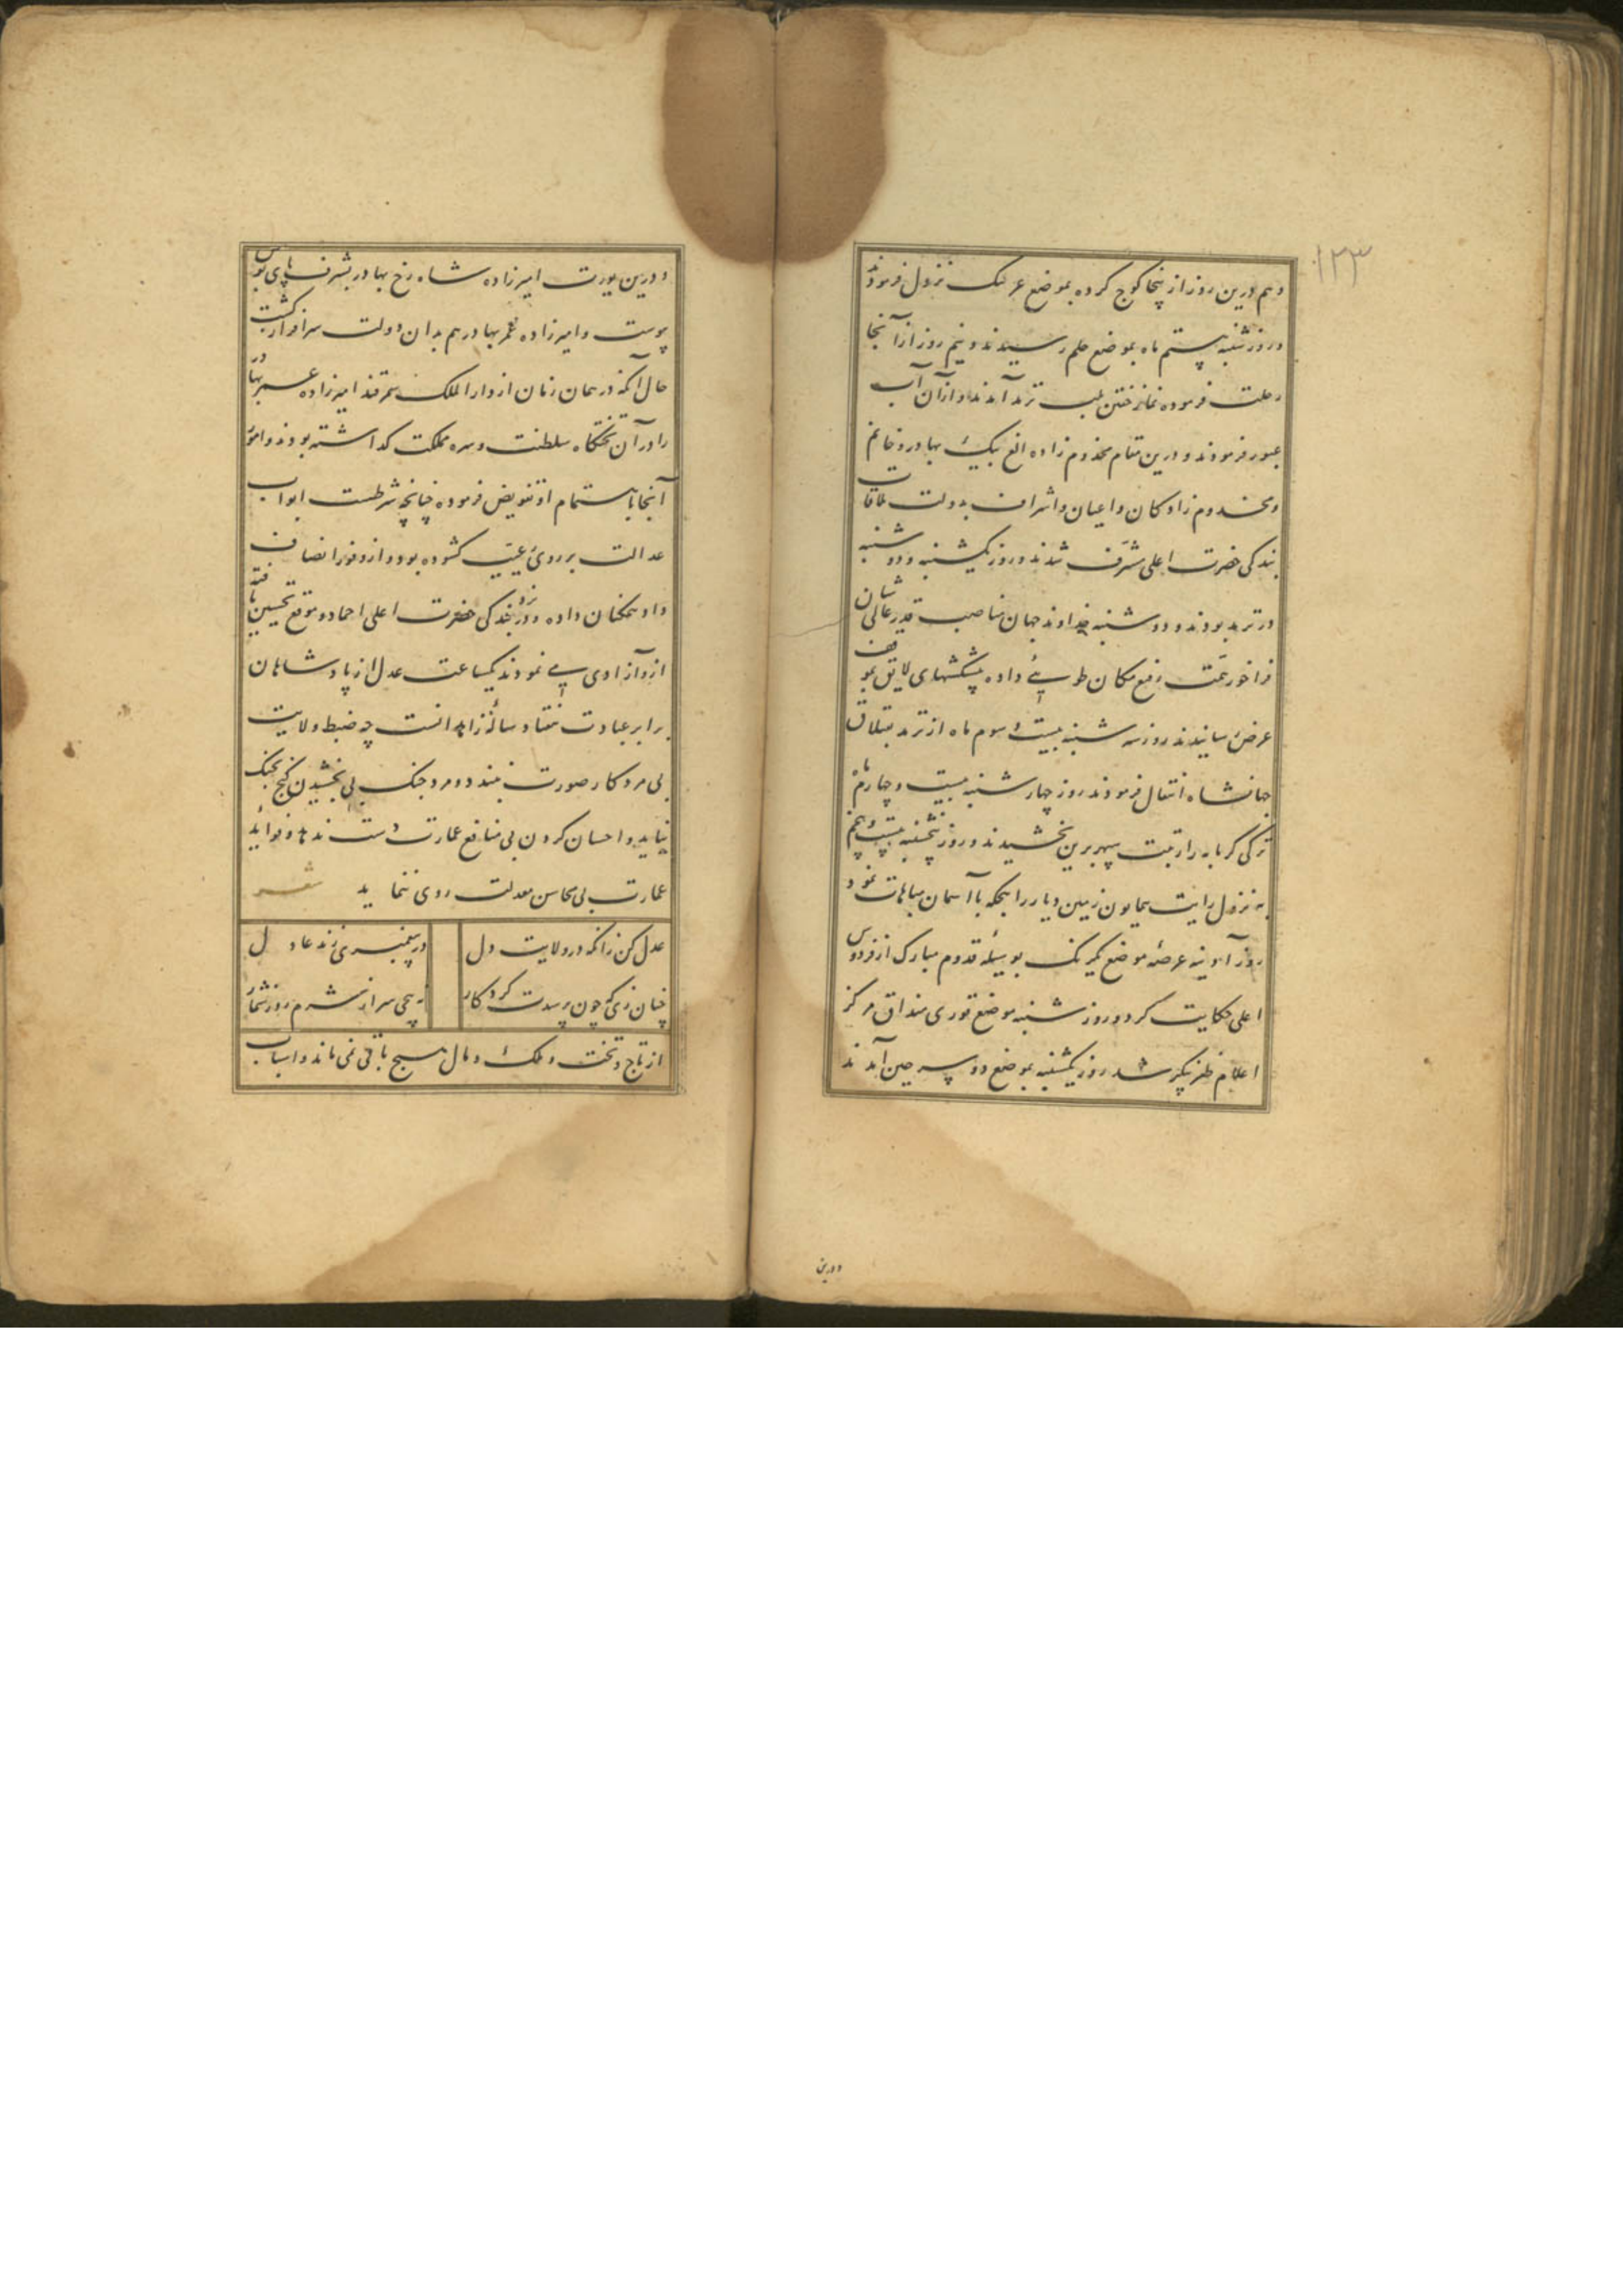 ۱۲۳
و هم درین روز از پنجا کوچ کرده بموضع غرنیک نزول فرمودند
و روز شنبه بیستم ماه بموضع خلم رسیدند و نیم روز از آنجا
رحلت فرموده نماز خفتن بلب ترمد آمدند و از آن آب
عبور فرمودند و درین مقام مخدوم زاده الغ بیک بهادر و خانم
و مخدوم زادکان و اعیان و اشراف بدولت ملاقات
بندکی حضرت اعلی مشرف شدند و روز یکشنبه و دوشنبه
در ترمد بودند و دوشنبه خداوند جهان مناصب قدر عالی شان
فراخور همت رفیع مکان طویی داده پیشکشهای لایق بموقف
عرض رسانیدند روز سه شنبه بیست و سوم ماه از ترمد بقشلاق
جهانشاه انتقال فرمودند روز چهار شنبه بیست و چهارم ماه
ترکی کرمابه را رتبت سپهر برین بخشیدند و روز پنجشنبه بیست و پنجم
به نزول رایت همایون زمین دیار را بیکه با آسمان مباهات نمود
روز آدینه عرصه موضع بوسیله قدوم مبارک از فردوس
اعلی حکایت کرد و روز شنبه موضع قوری منداق مرکز
اعلام ظفر پیکر شد روز یکشنبه بموضع آمدند
و درین
و درین یورت امیرزاده شاه رخ بهادر بشرف پای بوس
پیوست و امیرزاده عمر بهادر هم بدان دولت سرافراز کشت
حال آنکه در همان زمان از دار الملک سمرقند امیرزاده عمر بهادر
را در آن تختکاه سلطنت و سره مملکت کداشته بودند و امور
آنجا باهتمام او تفویض فرموده چنانچه شرطست ابواب
عدالت بر روی رعیت کشوده بود و از وفور انصاف
داد همکنان داده و در نزد بندکی حضرت اعلی احماد و موقع تحسین یافته
از و آزادی پی نمودند یکساعت عدل از پادشاهان
برابر عبادت هفتاد ساله زاهدانست چه ضبط ولایت
بی مرد کار صورت نبندد و مرد جنک بی بخشیدن کنج بجنک
نیاید و احسان کردن بی منافع عمارت دست ندهد و فواید
عمارت بی محاسن معدلت روی ننماید شعر
عدل کن زانکه در ولایت دل در پیغمبری زند عادل
چنان زی که چون پرسدت کردکار نپیچی سر از شرم روز شمار
از تاج و تخت و ملک و مال هیچ باقی نمی ماند و اسباب